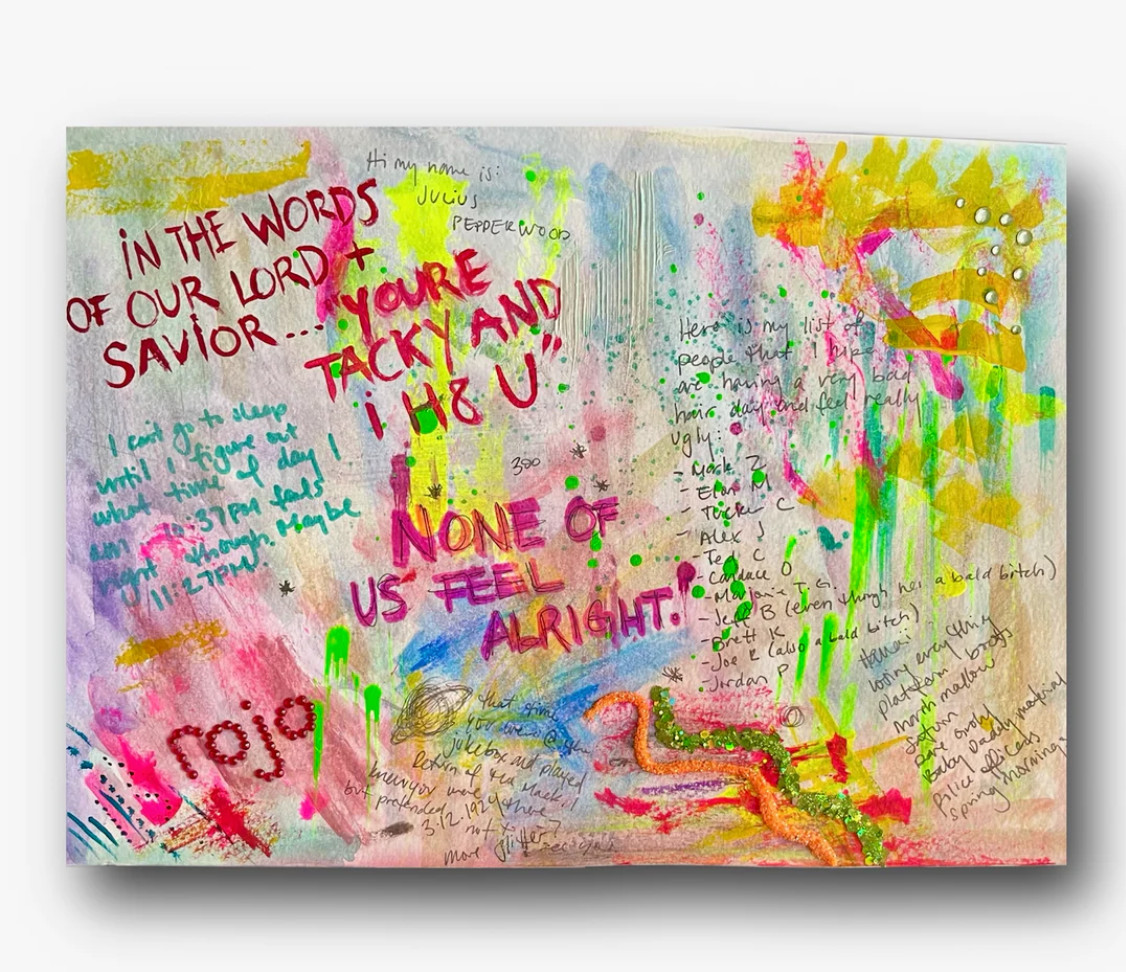 Hi my name is:
JULIUS
PEPPERWOOD
IN THE WORDS
OF OUR LORD +
SAVIOR...
"YOURE
TACKY AND
i H8 U"
I cant go to sleep
until I figure out
what time of day I
am 10:37PM feels
right though. Maybe
11:27PM?
380
NONE OF
US FEEL
ALRIGHT.
rojo
that time
you were @
jukebox and played
Return of the Mack
knew you were there
but pretended
3.12.1924
not
more glitter?
Here is my list of
people that I hope
are having a very bad
hair day and feel really
ugly:
- Mark Z
- Elon M
- Tucker C
- Alex J
- Ted C
- Candace O
- Marjorie T. G.
- Jeff B (even though hes a bald bitch)
- Brett K
- Joe R (also a bald bitch)
- Jordan P
losing everything
platform boots
marsh mallow
are only
Baby Daddy material
Police officers
Spring mornings